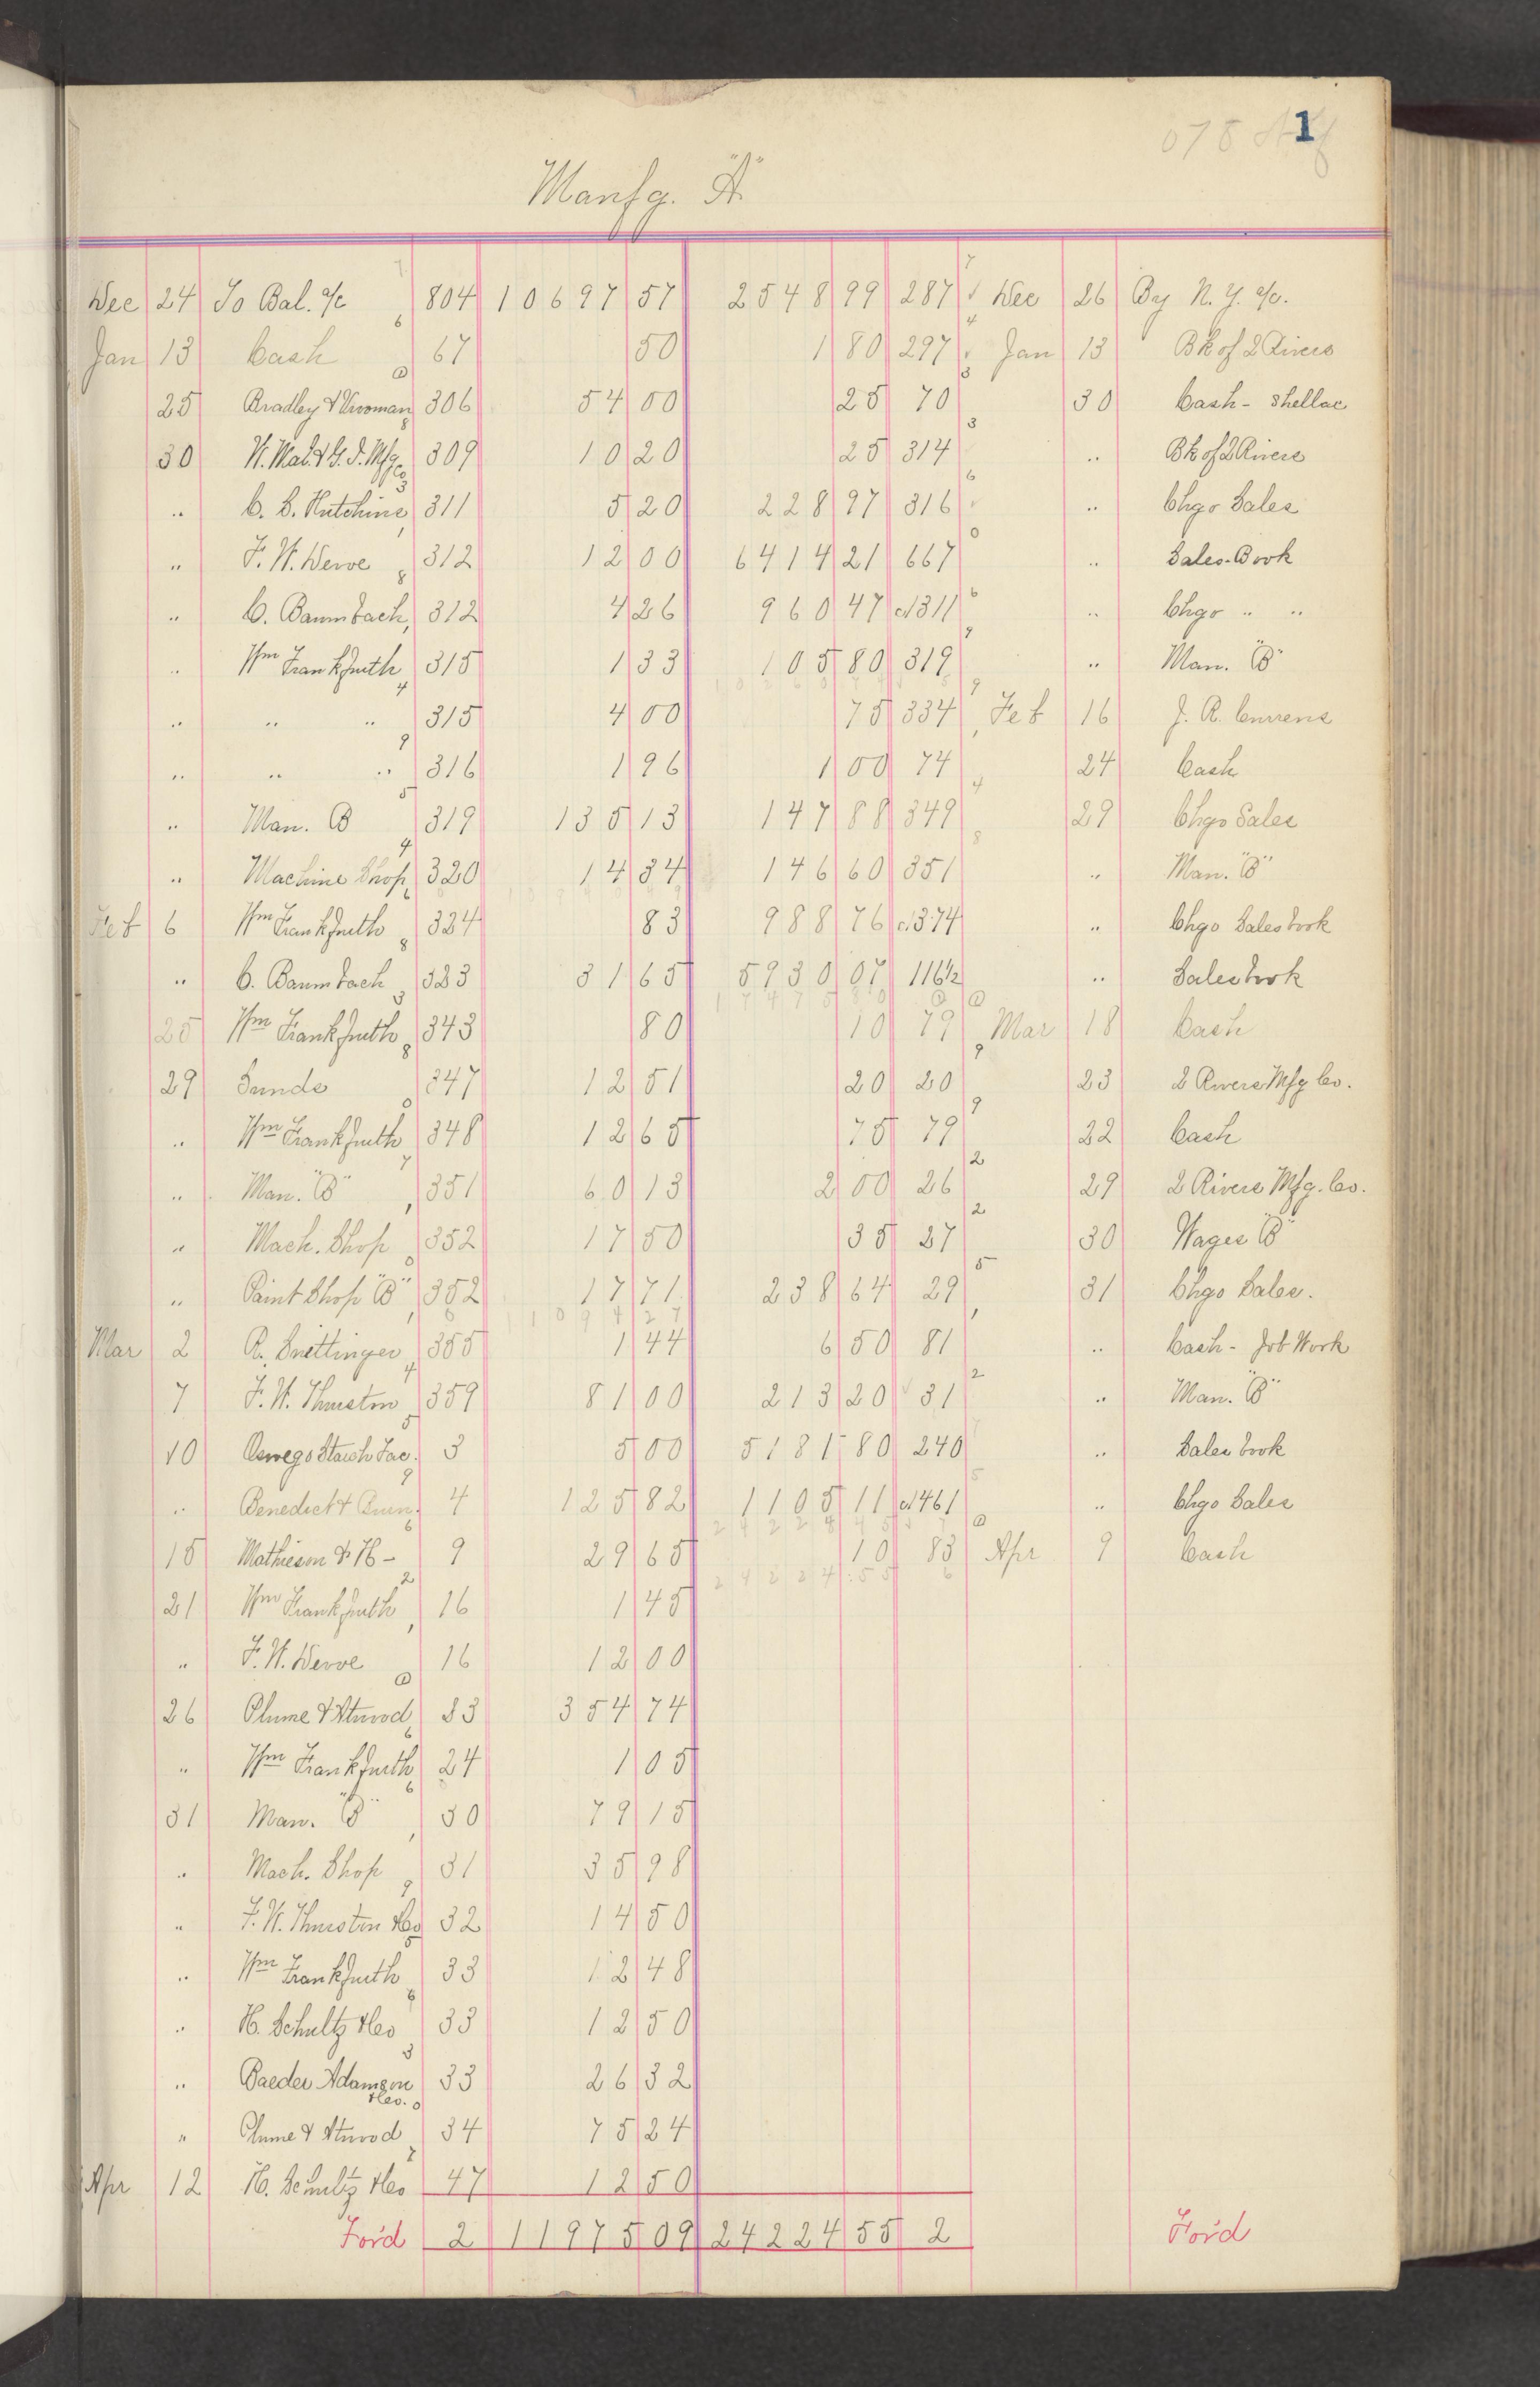 1
Manfg. "A"
Dec 24 To Bal. a/c 804 10697 57 2548 99 287 Dec 26 By N. Y. a/c.
Jan 13 Cash 67 50 1 80 297 Jan 13 Bk of 2 Rivers
25 Bradley & Vrooman 306 54 00 25 70 30 Cash - Shellac
30 W. Mal. & G. I. Mfg Co 309 10 20 25 314 " Bk of 2 Rivers
" C. B. Hutchins 311 5 20 228 97 316 " Chgo Sales
" F. W. Devoe 312 12 00 6414 21 667 " Sales-Book
" C. Baumbach 312 4 26 960 47 c1311 " Chgo " "
" Wm Frankfurth 315 1 33 105 80 319 " Man. "B"
" " " 315 4 00 75 334 Feb 16 J. R. Currens
" " " 316 1 96 1 00 74 24 Cash
" Man. B 319 135 13 147 88 349 29 Chgo Sales
" Machine Shop 320 14 34 146 60 351 " Man. "B"
Feb 6 Wm Frankfurth 334 83 988 76 c1374 " Chgo Salesbook
" C. Baumbach 333 31 65 5930 07 116½ " Salesbook
25 Wm Frankfurth 343 80 10 79 Mar 18 Cash
29 Sunds 347 12 51 20 20 23 2 Rivers Mfg Co.
" Wm Frankfurth 348 12 65 75 79 22 Cash
" Man. "B" 351 60 13 2 00 26 29 2 Rivers Mfg. Co.
" Mach. Shop 352 17 50 35 27 30 Wages "B"
" Paint Shop "B" 352 17 71 238 64 29 31 Chgo Sales.
Mar 2 R. Suettinger 355 1 44 6 50 81 " Cash - Job Work
7 F. W. Thurston 359 81 00 213 20 31 " Man. "B"
10 Oswego Starch Fac. 3 5 00 5181 80 240 " Sales book
" Benedict & Burn. 4 125 82 1105 11 c1461 " Chgo Sales
15 Mathison & H - 9 29 65 10 83 Apr 9 Cash
21 Wm Frankfurth 16 1 45
" F. W. Devoe 16 12 00
26 Plume & Atwood 23 354 74
" Wm Frankfurth 24 1 05
31 Man. "B" 30 79 15
" Mach. Shop 31 35 98
" F. W. Thurston &Co 32 14 50
" Wm Frankfurth 33 12 48
" H. Schultz &Co 33 12 50
" Baeder Adamson &Co. 33 26 32
" Plume & Atwood 34 75 24
Apr 12 H. Schultz &Co 47 12 50
Ford 2 11975 09 24224 55 2 Ford